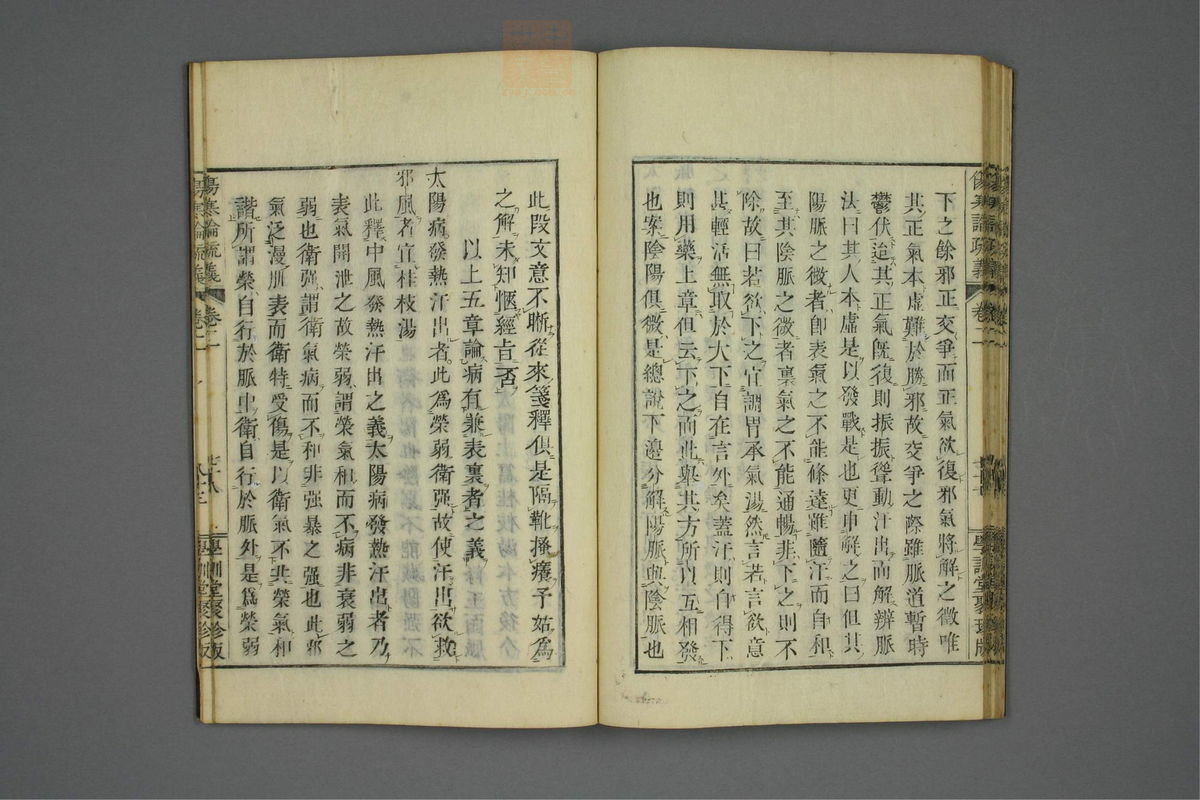 下之餘邪正交爭而正氣欲復邪氣將解之徵唯
其正氣本虛難於勝邪故交爭之際雖脈道暫時
鬱伏迨其正氣既復則振振聳動汗出而解辨脈
法曰其人本虛是以發戰是也更申解之曰但其
陽脈之微者卽表氣之不能條達雖隨汗而自和
至其陰脈之微者裏氣之不能通暢非下之則不
除故曰若欲下之宜調胃承氣湯然言若言欲意
甚輕活無取於大下自在言外矣蓋汗則自得下
則用藥上章但云下之而此舉其方所以互相發
也案陰陽俱微是總說下邊分解陽脈與陰脈也
此段文意不晰從來箋釋俱是隔靴搔癢予姑爲
之解未知愜經旨否
以上五章論病有兼表裏者之義
太陽病發熱汗出者此爲榮弱衛强故使汗出欲救
邪風者宜桂枝湯
此釋中風發熱汗出之義太陽病發熱汗出者乃
表氣開泄之故榮弱謂榮氣和而不病非衰弱之
弱也衛强謂衛氣病而不和非强暴之强也此邪
氣泛漫肌表而衛特受傷是以衛氣不共榮氣和
諧所謂榮自行於脈中衛自行於脈外是爲榮弱
傷寒論疏義 卷二
學訓堂聚珍版